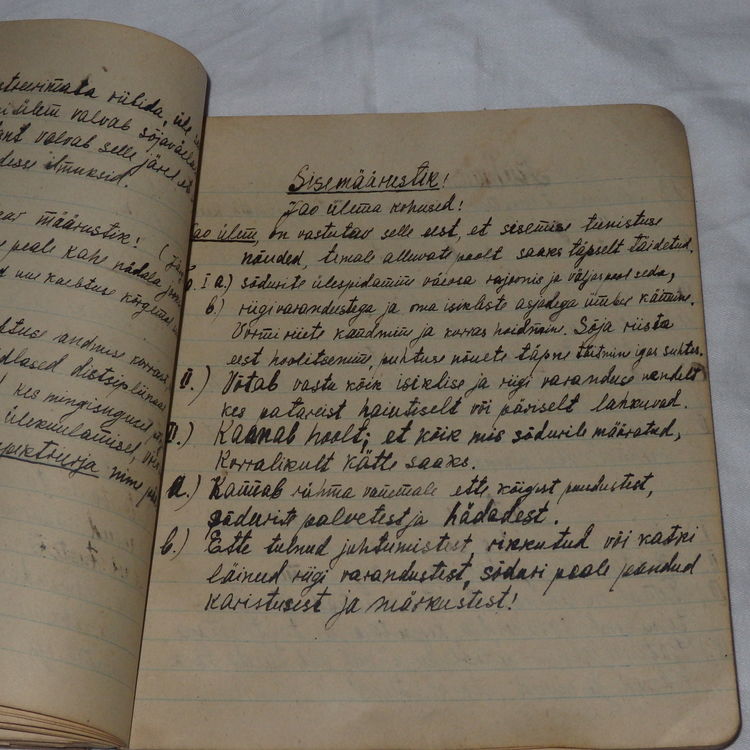 riibida, üle
ülem valvab sõjaväelas
valvab selle järel et
ilmuksid.
määrustik!
peale kahe nädala
uue kaebtuse kõrgemal
andmise korrast
distsiplinaar
kes mingisugusel
ülekuulamisel, võis
nime
Sisemäärustik!
Jao ülema kohused!
Jao ülem, on vastutav selle eest, et sisemise teenistuse
nõuded, temale alluvate poolt saaks täpselt täidetud.
I a.) sõdurite ülespidamine väeosa rajoonis ja väljaspool seda,
b.) riigivarandustega ja oma isikliste asjadega ümber käimine.
Vormi riiete kandmine ja korras hoidmine. Sõja riista
eest hoolitsemine, puhtuse nõuete täpne täitmine igas suhtes.
II.) Võtab vastu kõik isiklise ja riigi varanduse nendelt
kes patareist haiutiselt või päriselt lahkuvad.
II.) Kannab hoolt, et kõik mis sõdurile määratud,
korralikult kätte saaks.
a.) Kannab rühma vanemale ette kõigist puudustest,
sõdurite palvetest ja hädadest.
b.) Ette tulnud juhtumistest, rikkutud või katki
läinud riigi varandustest, sõduri peale pandud
karistusist ja märkustest!